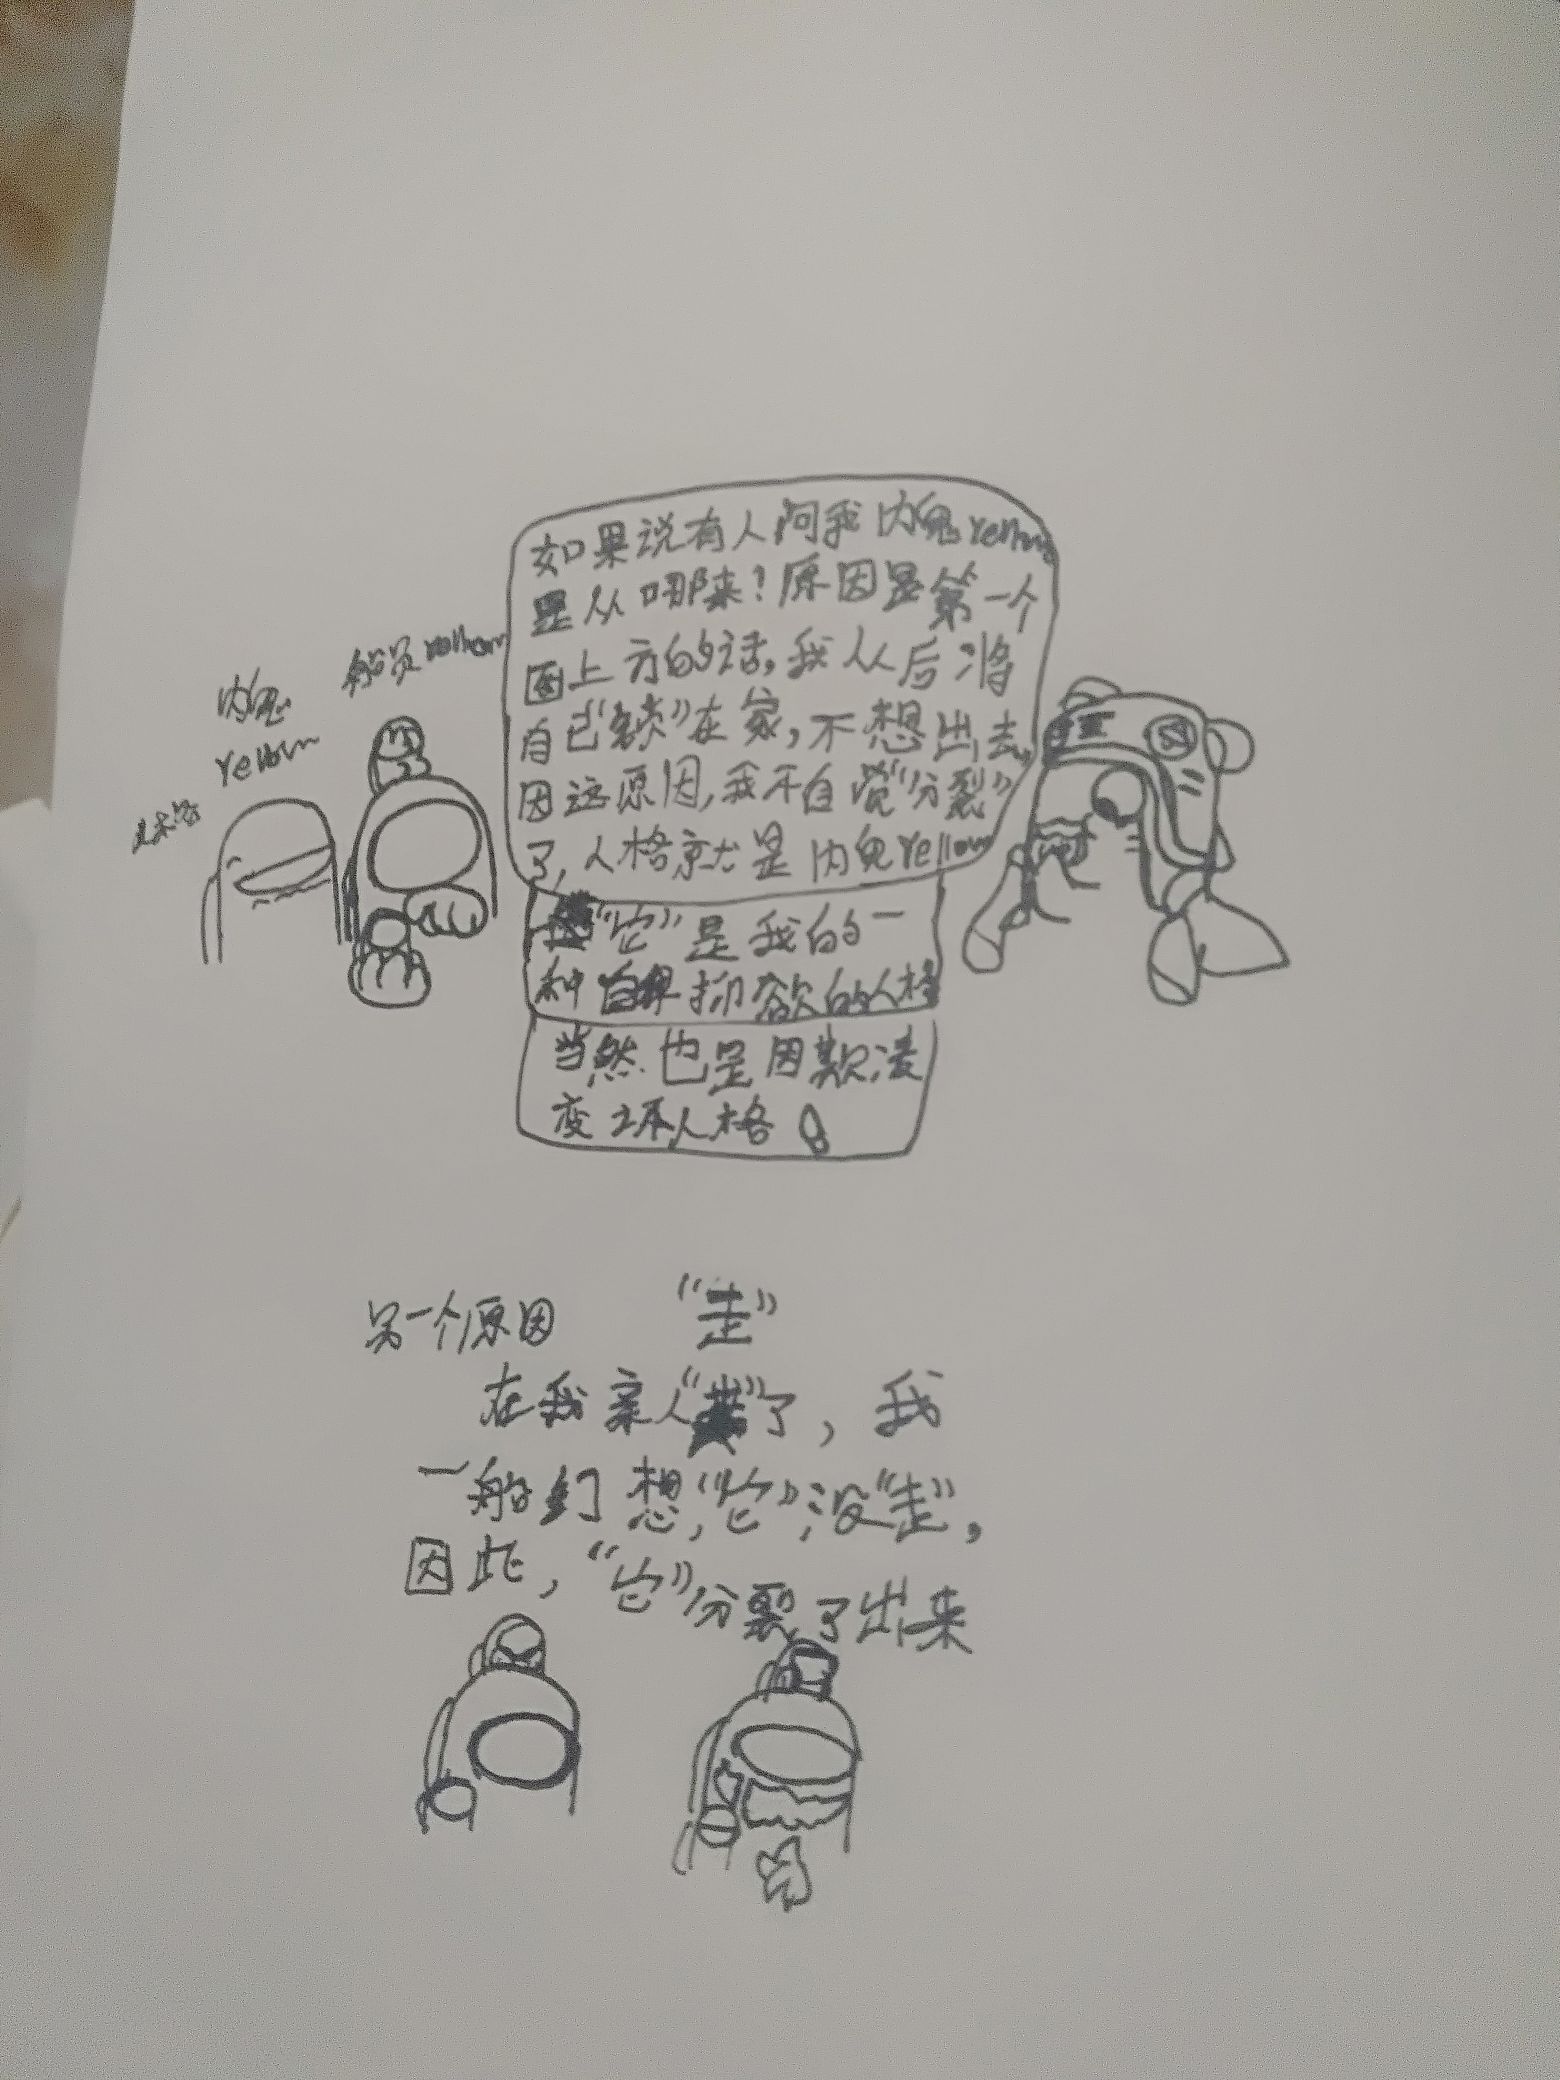 如果说有人问我内鬼Yellow
是从哪来?原因是第一个
面上方的话,我从后将
自己“锁”在家,不想出去,
因这原因,我不自觉“分裂”
了,人格就是内鬼Yellow
船员Yellow
内鬼
Yellow
“它”是我的一
种自卑抑欲的人格
当然也是因欺凌
变坏人格
另一个原因
“走”
在我亲人“ ”了,我
一般幻想,“它”没“走”,
因此,“它”分裂了出来